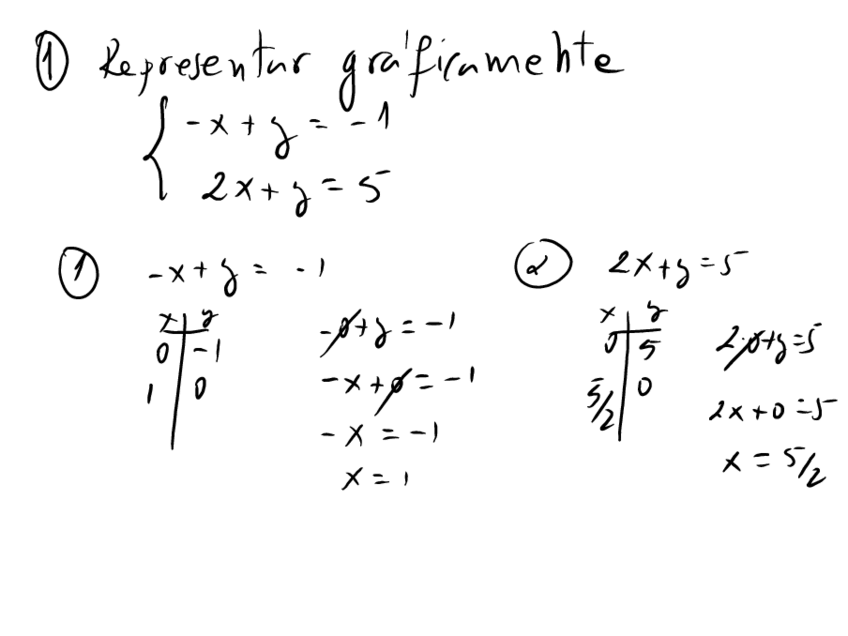 ① Representar gráficamente
-x + y = -1
2x + y = 5
① -x + y = -1
x y
0 -1
1 0
-0 + y = -1
-x + 0 = -1
-x = -1
x = 1
② 2x + y = 5
x y
0 5
5/2 0
2·0 + y = 5
2x + 0 = 5
x = 5/2